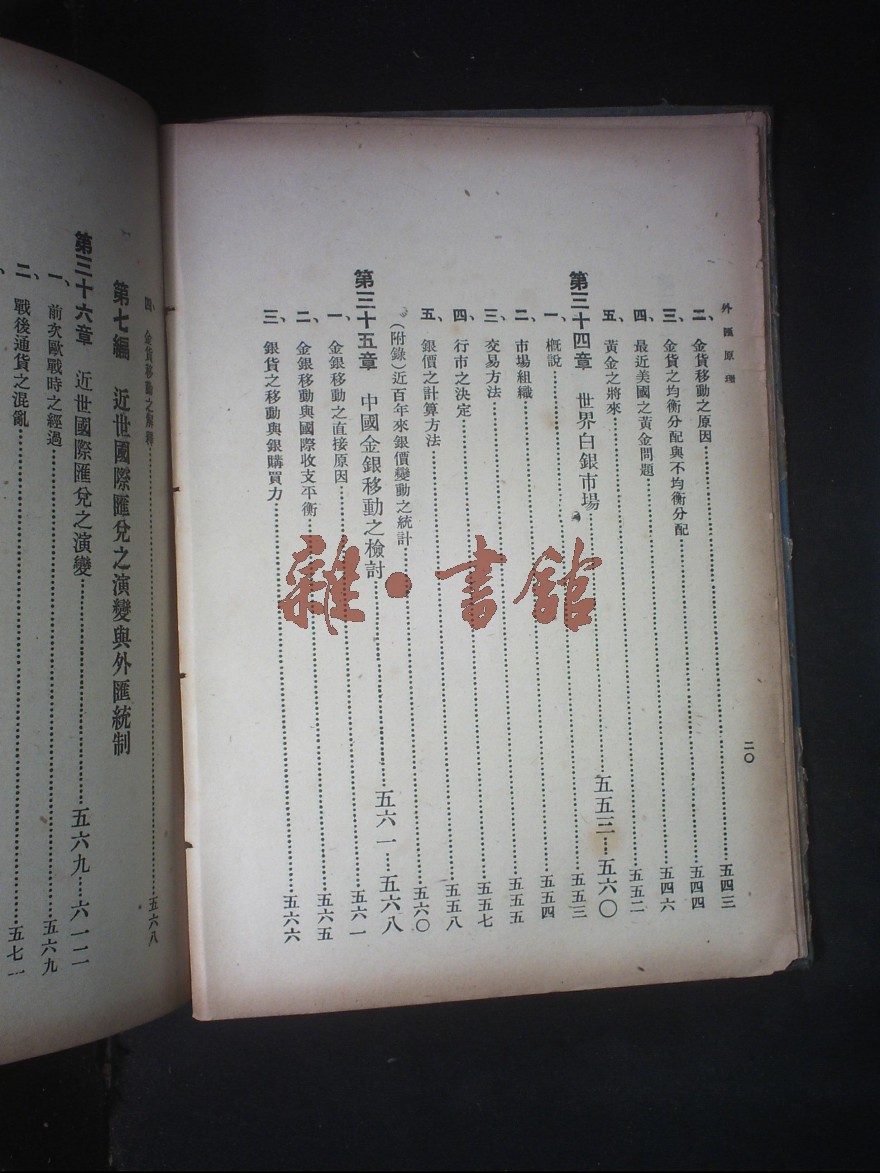 外匯原理
二〇
二、金貨移動之原因……五四三
三、金貨之均衡分配與不均衡分配……五四四
四、最近美國之黃金問題……五四六
五、黃金之將來……五五二
第三十四章 世界白銀市場……五五三…五六〇
一、概說……五五三
二、市場組織……五五四
三、交易方法……五五五
四、行市之決定……五五七
五、銀價之計算方法……五五八
(附錄)近百年來銀價變動之統計……五六〇
第三十五章 中國金銀移動之檢討……五六一…五六八
一、金銀移動之直接原因……五六一
二、金銀移動與國際收支平衡……五六五
三、銀貨之移動與銀購買力……五六六
四、金貨移動之解釋……五六八
第七編 近世國際匯兌之演變與外匯統制
第三十六章 近世國際匯兌之演變……五六九…六一二
一、前次歐戰時之經過……五六九
二、戰後通貨之混亂……五七一
雜·書館